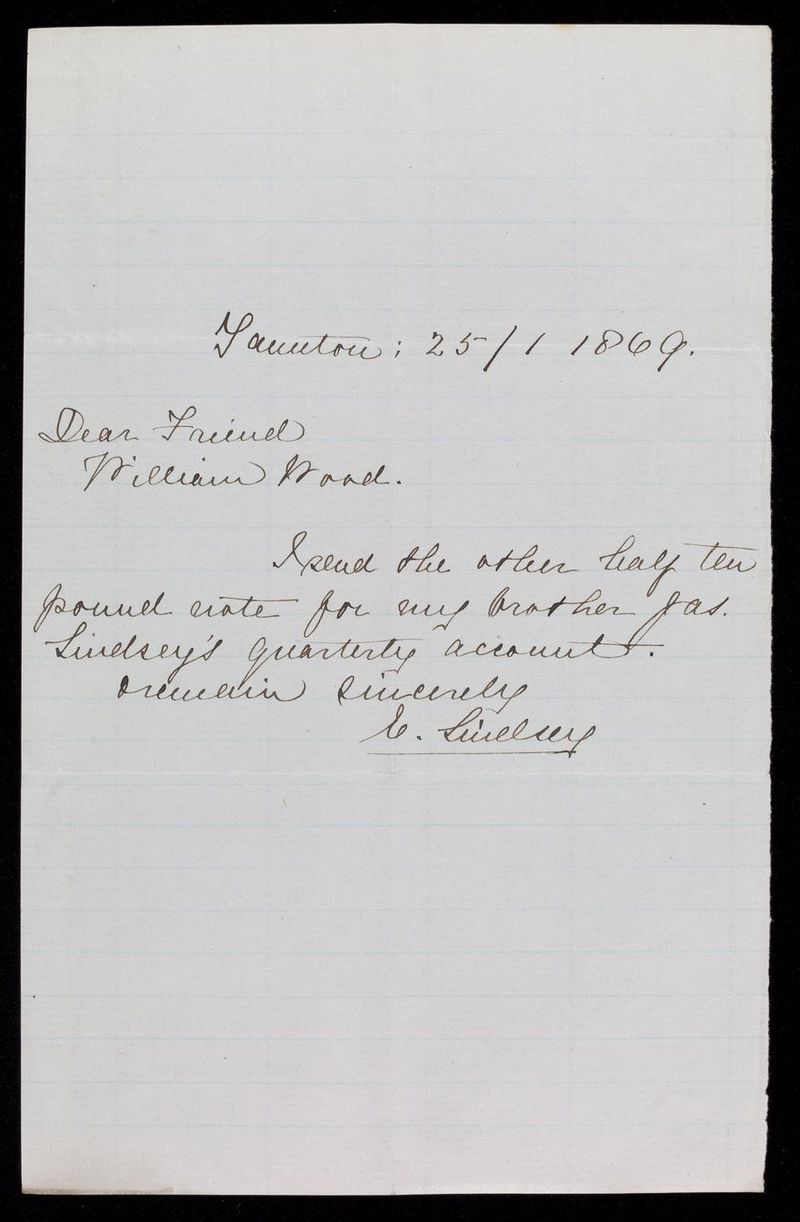 Taunton: 25/1 1869.
Dear Friend
William Wood.
I send the other half ten
pound note for my brother Jas.
Lindsey's quarterly account.
I remain sincerely
E. Lindsey